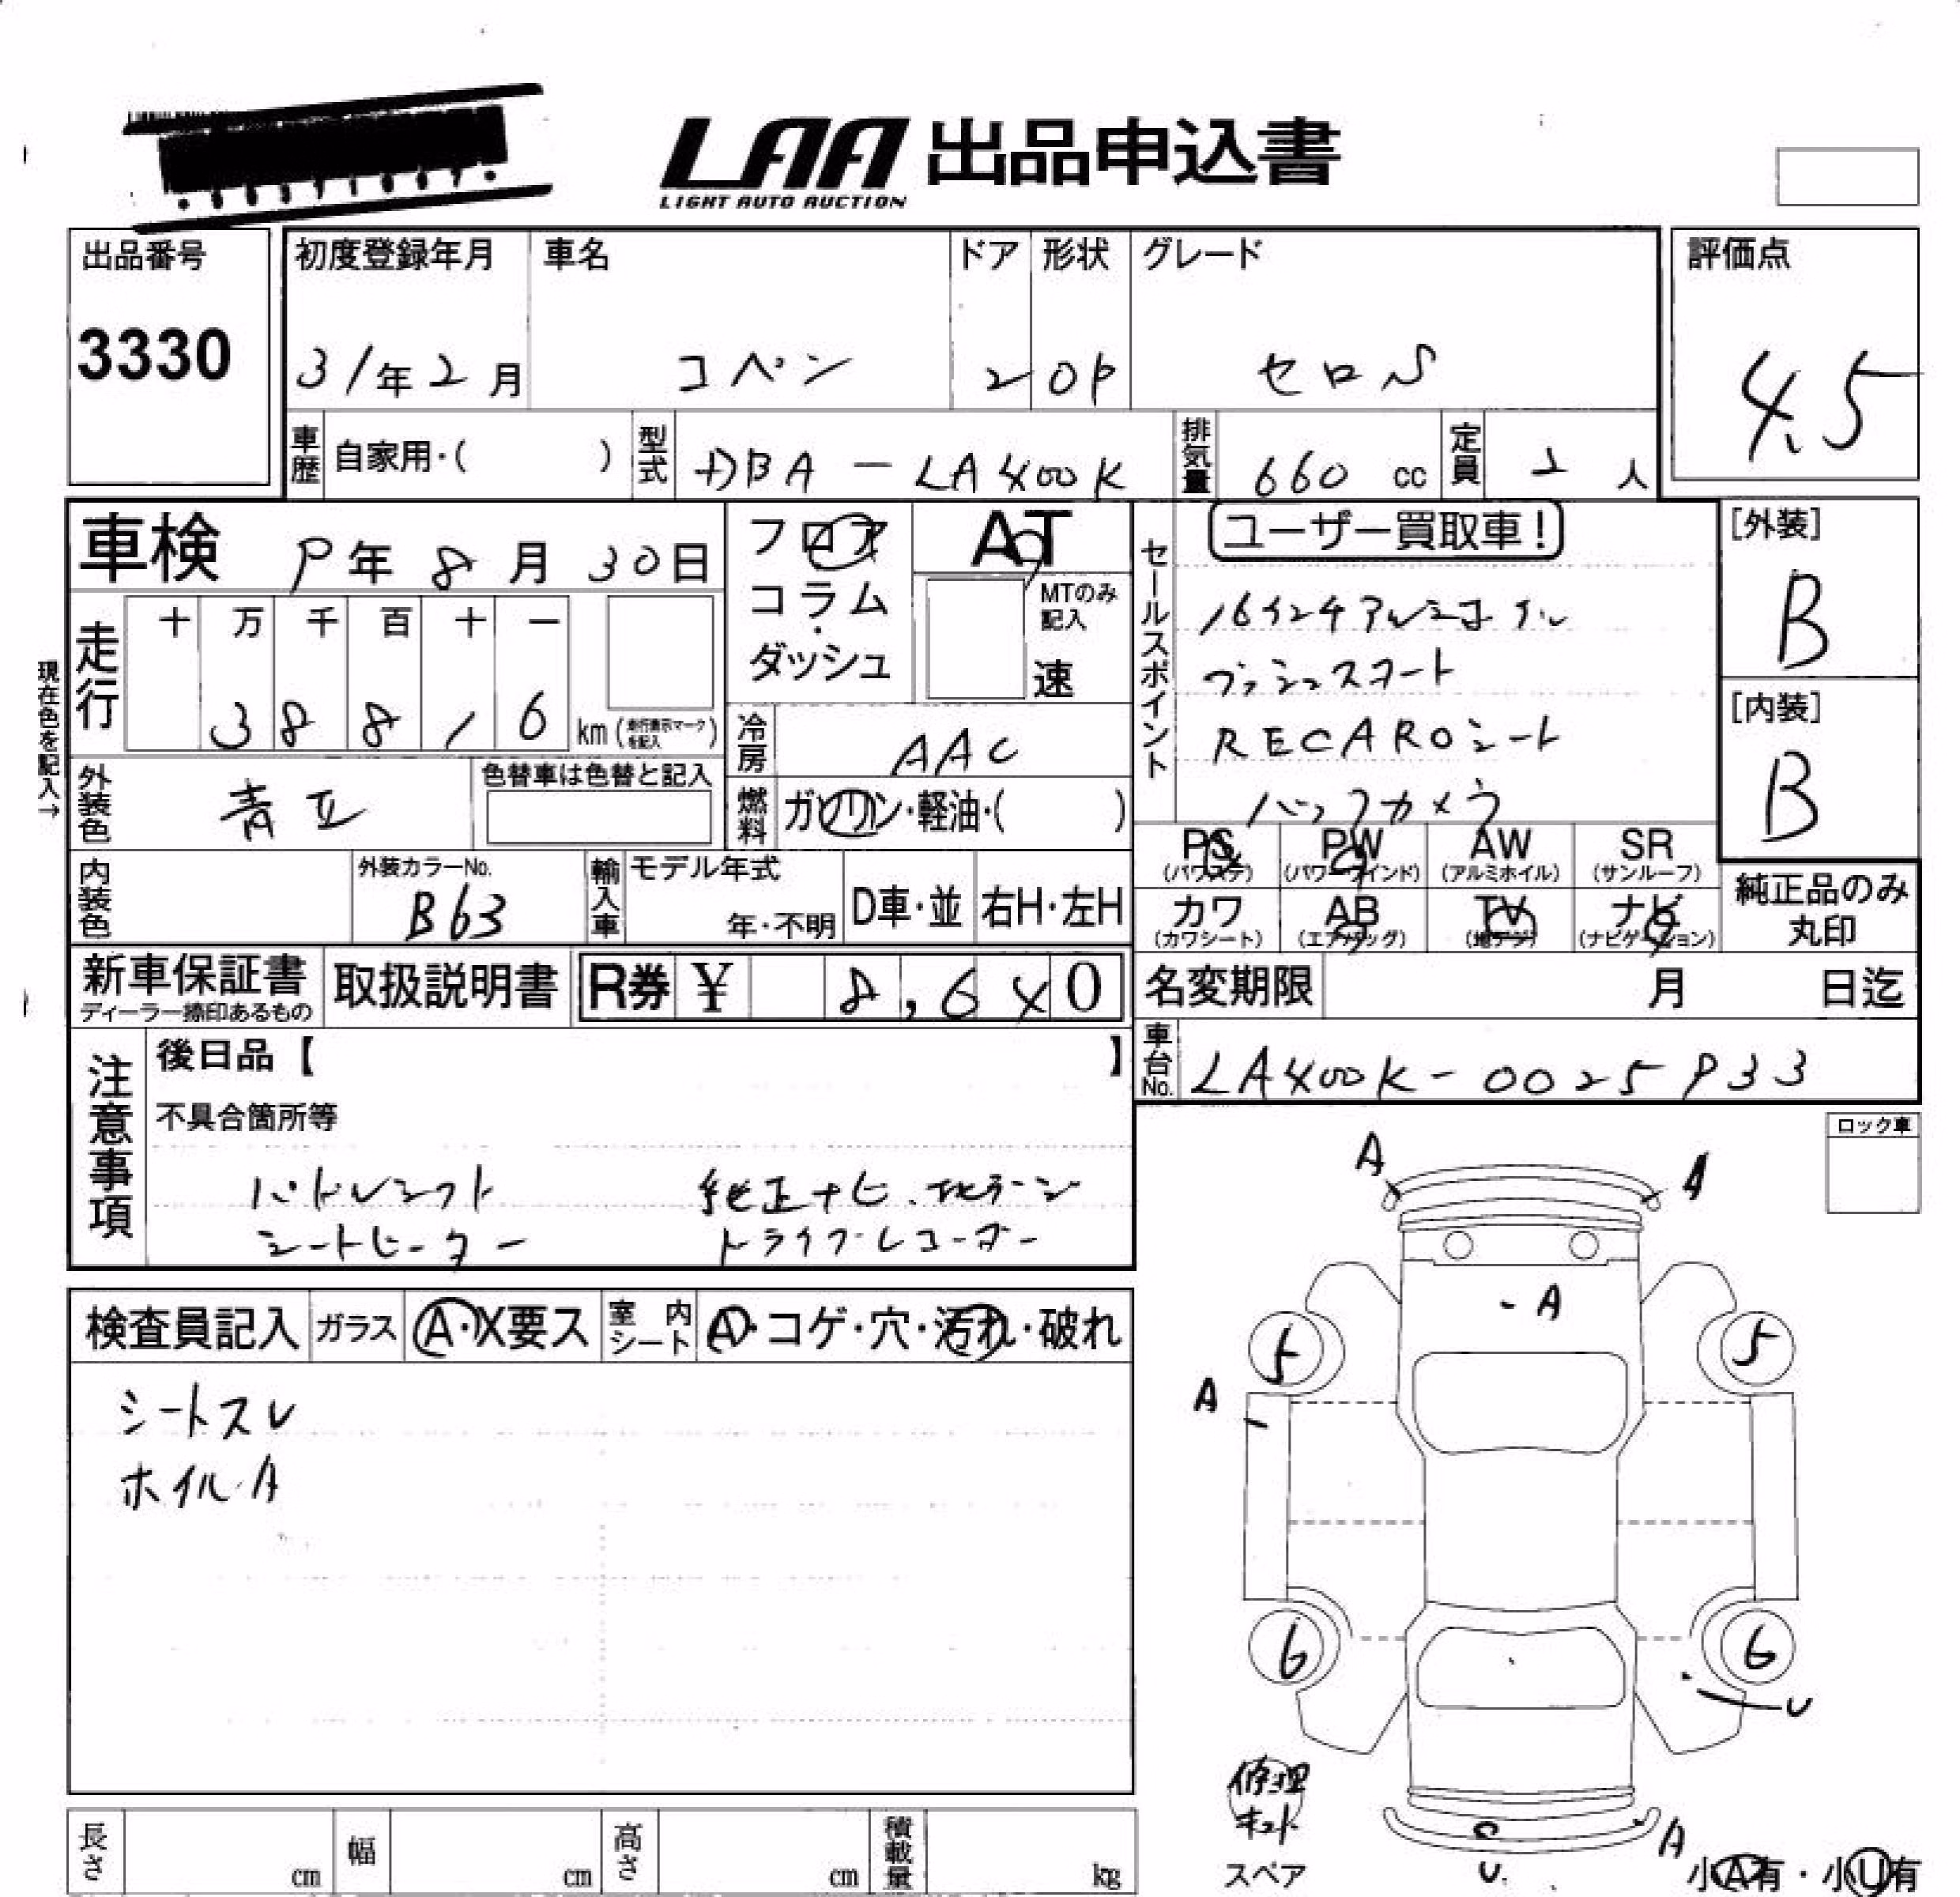 LAA 出品申込書
LIGHT AUTO AUCTION
出品番号 初度登録年月 車名 ドア 形状 グレード 評価点
3330 31年2月 コペン 2 OP セロS 4.5
車歴 自家用・( ) 型式 DBA-LA400K 排気量 660 cc 定員 2 人
車検 9年 8月 30日 フロア AT ユーザー買取車! [外装]
コラム・ダッシュ MTのみ記入 速 B
走行 十 万 千 百 十 一
3 8 8 1 6 km(走行表示マークを記入)
現在色を記入→
セールスポイント
16インチアルミホイール
プッシュスタート
RECAROシート
バックカメラ
[内装]
B
冷房 AAC
外装色 青 色替車は色替と記入 燃料 ガソリン・軽油・( )
PS PW AW SR
(パワステ) (パワーウインド) (アルミホイル) (サンルーフ)
内装色 外装カラーNo. B63 輸入車 モデル年式 年・不明 D車・並 右H・左H
カワ AB TV ナビ
(カワシート) (エアバッグ) (地デジ) (ナビゲーション)
純正品のみ丸印
新車保証書 取扱説明書 R券 ¥ 8,640 名変期限 月 日迄
ディーラー捺印あるもの
車台No. LA400K-0025933
注意事項 後日品【 】
不具合箇所等
パドルシフト 純正ナビ.地デジ
シートヒーター ドライブレコーダー
ロック車
検査員記入 ガラス A・X要ス 室内シート A・コゲ・穴・汚れ・破れ
シートスレ
ホイルA
A A
A
5 5
A
6 6
U
修理キット
スペア
A
U
小A有・小U有
長さ cm 幅 cm 高さ cm 積載量 kg